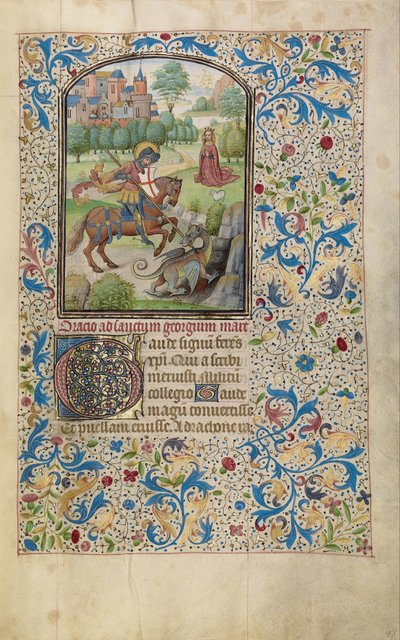 Oracio ad sanctum georgium mart
Gaude signum ferēs
xpi. Qui a scribi
meruisti Militū
collegio Gaude
magū convertisse
Et puellam eruisse. A dracone va